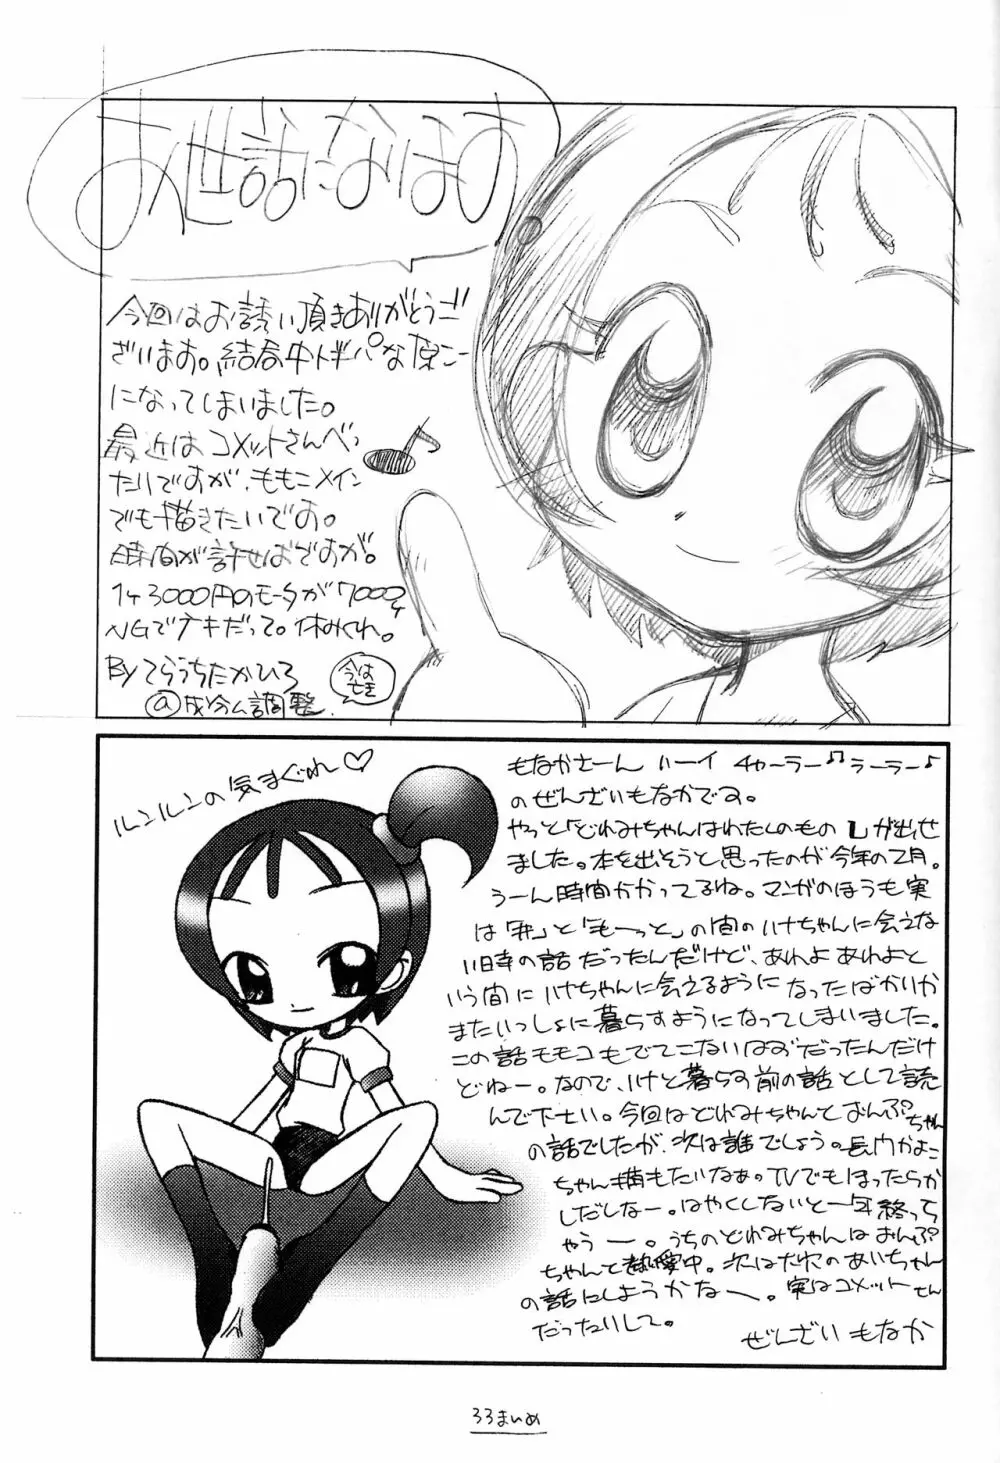 お世話になります
今回はお誘い頂きありがとうご
ざいます。結局中トハンパな原こー
になってしまいました。
最近はコメットさんべっ
たりですが、ももこメイン
でも描きたいです。
時間が許せばですが。
1ヶ3000円のモータが7000ヶ
NGでナキだって。休みくれ。
Byてらうちたかひろ
@成分ム調整
今は亡き
ルンルンの気まぐれ♡
もなかさーん ハーイ チャーラー♫ラーラー♪
のぜんざいもなかです。
やっと「どれみちゃんはわたしのもの」が出せ
ました。本を出そうと思ったのが今年の2月。
うーん時間かかってるね。マンガのほうも実
は「#」と「も〜っと」の間のハナちゃんに会えな
い時の話だったんだけど、あれよあれよと
いう間にハナちゃんに会えるようになったばかりか
またいっしょに暮らすようになってしまいました。
この話モモコもでてこないはずだったんだけ
どねー。なので、ハナと暮らす前の話として読
んで下さい。今回はどれみちゃんとおんぷちゃん
の話でしたが、次は誰でしょう。長門かよこ
ちゃん描もたいなぁ。TVでもほったらか
しだしなー。はやくしないと一年終っち
ゃうー。うちのどれみちゃんはおんぷ
ちゃんと熱愛中。次はだれのあいちゃん
の話にしようかなー。実はコメットさん
だったりして。
ぜんざいもなか
33まいめ